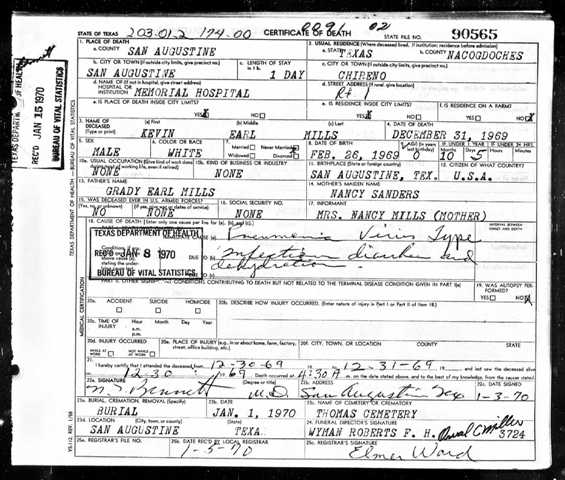 203.01.2 174.00 0091 02
STATE OF TEXAS CERTIFICATE OF DEATH STATE FILE NO. 90565
1. PLACE OF DEATH 2. USUAL RESIDENCE (Where deceased lived. If institution: residence before admission)
a. COUNTY SAN AUGUSTINE a. STATE TEXAS b. COUNTY NACOGDOCHES
b. CITY OR TOWN (If outside city limits, give precinct no.) c. LENGTH OF STAY c. CITY OR TOWN (If outside city limits, give precinct no.)
SAN AUGUSTINE 1 DAY CHIRENO
d. NAME OF (If not in hospital, give street address) HOSPITAL OR INSTITUTION MEMORIAL HOSPITAL d. STREET ADDRESS (If rural, give location) Rt 1
e. IS PLACE OF DEATH INSIDE CITY LIMITS? YES NO e. IS RESIDENCE INSIDE CITY LIMITS? YES NO f. IS RESIDENCE ON A FARM? YES NO
3. NAME OF DECEASED (Type or print) (a) First (b) Middle (c) Last 4. DATE OF DEATH
KEVIN EARL MILLS DECEMBER 31, 1969
5. SEX 6. COLOR OR RACE 7. Married Never Married Widowed Divorced 8. DATE OF BIRTH IF UNDER 1 YEAR IF UNDER 24 HRS.
MALE WHITE FEB. 26, 1969 0 10 5
10a. USUAL OCCUPATION 10b. KIND OF BUSINESS OR INDUSTRY 11. BIRTHPLACE (State or foreign country) 12. CITIZEN OF WHAT COUNTRY?
NONE NONE SAN AUGUSTINE, TEX. U.S.A.
13. FATHER'S NAME 14. MOTHER'S MAIDEN NAME
GRADY EARL MILLS NANCY SANDERS
15. WAS DECEASED EVER IN U.S. ARMED FORCES? 16. SOCIAL SECURITY NO. 17. INFORMANT
NO NONE NONE MRS. NANCY MILLS (MOTHER)
18. CAUSE OF DEATH INTERVAL BETWEEN ONSET AND DEATH
TEXAS DEPARTMENT OF HEALTH
REC'D JAN 8 1970
BUREAU OF VITAL STATISTICS
Pneumonia Virus Type
DUE TO Infectious diarrhea and
dehydration
19. WAS AUTOPSY PERFORMED? YES NO
20a. ACCIDENT SUICIDE HOMICIDE 20b. DESCRIBE HOW INJURY OCCURRED. (Enter nature of injury in Part I or Part II of item 18.)
20c. TIME OF INJURY Hour Month Day Year a.m. p.m.
20d. INJURY OCCURRED WHILE AT WORK NOT WHILE AT WORK 20e. PLACE OF INJURY (e.g., in or about home, farm, factory, street, office building, etc.) 20f. CITY, TOWN, OR LOCATION COUNTY STATE
21. I hereby certify that I attended the deceased from 12-30-69 to 12-31-69 and last saw the deceased alive
on 12-30 1969 Death occurred at 4:30 A m. on the date stated above, and to the best of my knowledge, from the causes stated
22a. SIGNATURE (Degree or title) 22b. ADDRESS 22c. DATE SIGNED
Bennett M.D. San Augustine Tex 1-3-70
23a. BURIAL, CREMATION, REMOVAL (Specify) 23b. DATE 23c. NAME OF CEMETERY OR CREMATORY
BURIAL JAN. 1, 1970 THOMAS CEMETERY
23d. LOCATION (City, town, or county) (State) 24. FUNERAL DIRECTOR'S SIGNATURE
SAN AUGUSTINE TEXA. WYMAN ROBERTS F. H. 3724
25a. REGISTRAR'S FILE NO. 25b. DATE REC'D BY LOCAL REGISTRAR 25c. REGISTRAR'S SIGNATURE
1-5-70 Elmer Ward
TEXAS DEPARTMENT OF HEALTH
REC'D JAN 15 1970
BUREAU OF VITAL STATISTICS
MEDICAL CERTIFICATION